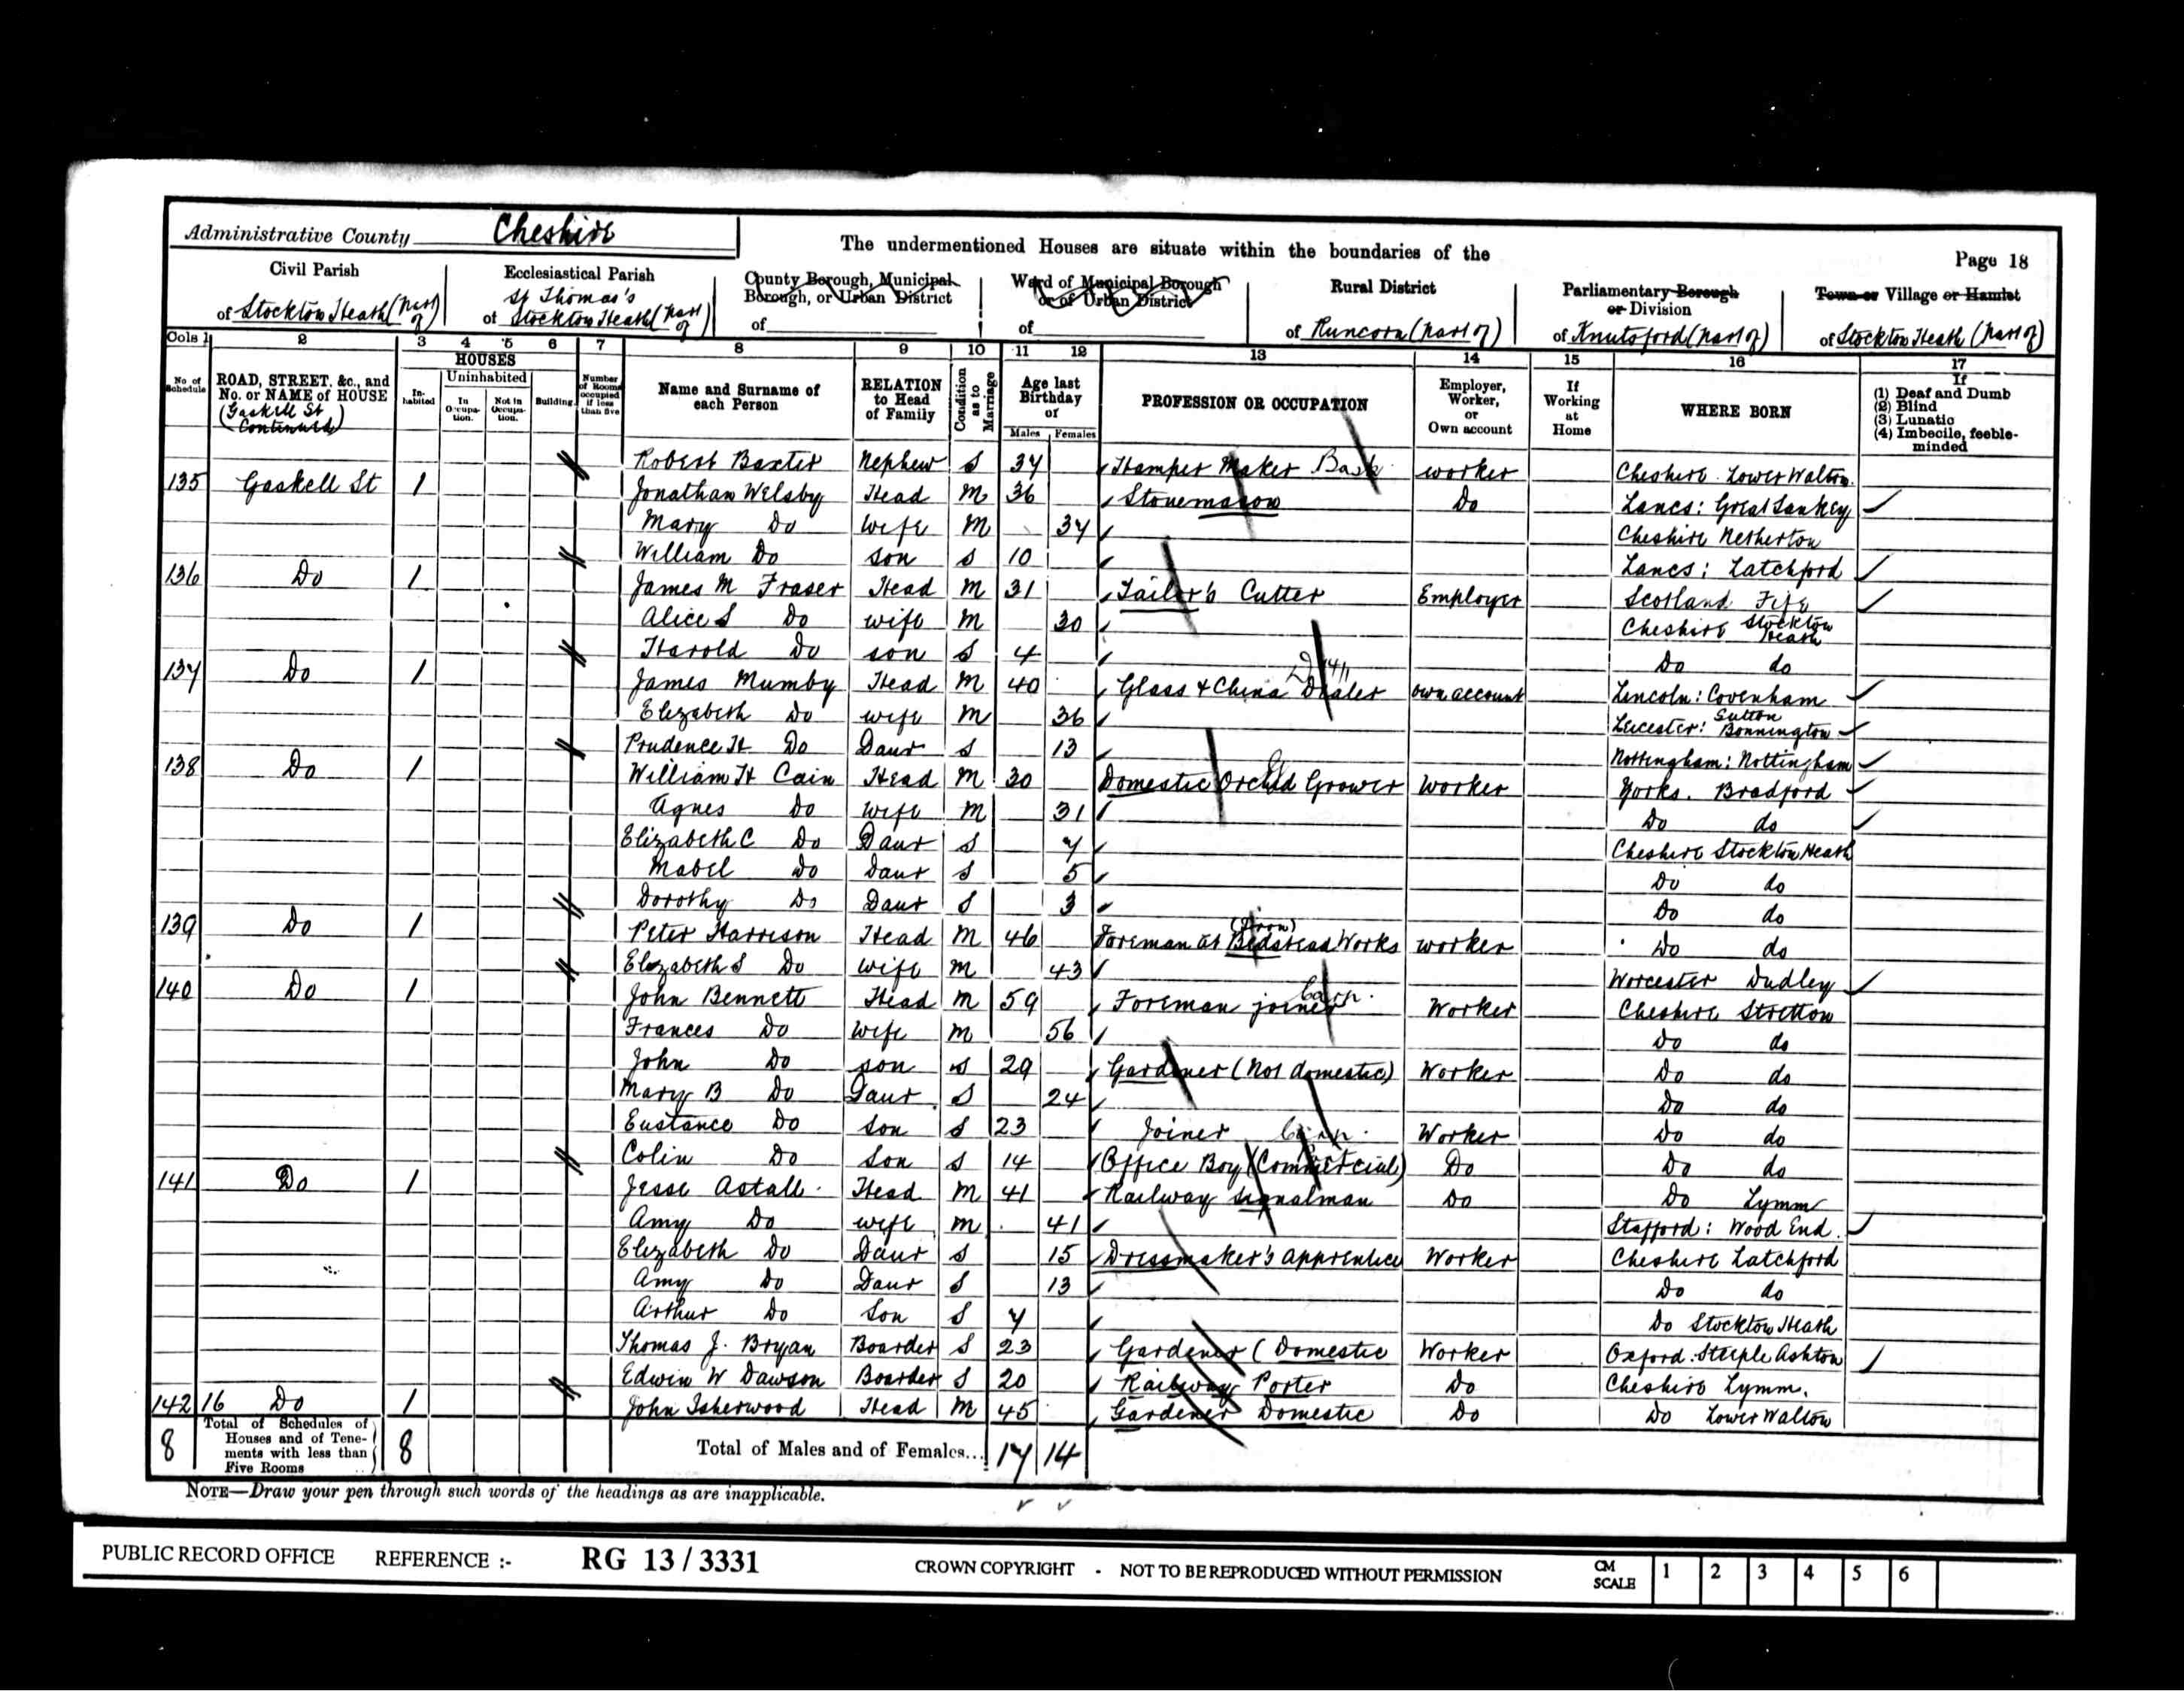 Administrative County Cheshire
The undermentioned Houses are situate within the boundaries of the
Page 18
Civil Parish
of Stockton Heath (Part of)
Ecclesiastical Parish
St Thomas's
of Stockton Heath (Part of)
County Borough, Municipal Borough, or Urban District
of
Ward of Municipal Borough or of Urban District
of
Rural District
of Runcorn (Part of)
Parliamentary Borough or Division
of Knutsford (Part of)
Town or Village or Hamlet
of Stockton Heath (Part of)
Cols 1 2 3 4 5 6 7 8 9 10 11 12 13 14 15 16 17
No. of Schedule
ROAD, STREET, &c., and No. or NAME of HOUSE
(Gaskell St Continued)
HOUSES
Inhabited
Uninhabited
In Occupation.
Not in Occupation.
Building.
Number of Rooms occupied if less than five
Name and Surname of each Person
RELATION to Head of Family
Condition as to Marriage
Age last Birthday of
Males Females
PROFESSION OR OCCUPATION
Employer, Worker, or Own account
If Working at Home
WHERE BORN
If
(1) Deaf and Dumb
(2) Blind
(3) Lunatic
(4) Imbecile, feeble-minded
Robert Baxter Nephew S 37 Hamper Maker Bask. worker Cheshire Lower Walton
135 Gaskell St 1 Jonathan Welsby Head M 36 Stonemason Do Lancs: Great Sankey
Mary Do wife M 37 Cheshire Netherton
William Do son S 10 Lancs: Latchford
136 Do 1 James M Fraser Head M 31 Tailor's Cutter Employer Scotland Fife
Alice S Do wife M 30 Cheshire Stockton Heath
Harold Do son S 4 Do do
137 Do 1 James Mumby Head M 40 Glass & China Dealer own account Lincoln: Covenham
Elizabeth Do wife M 36 Leicester: Sutton Bonnington
Prudence H Do Daur S 13 Nottingham: Nottingham
138 Do 1 William H Cain Head M 30 Domestic Orchid Grower Worker Yorks. Bradford
Agnes Do wife M 31 Do do
Elizabeth C Do Daur S 7 Cheshire Stockton Heath
Mabel Do Daur S 5 Do do
Dorothy Do Daur S 3 Do do
139 Do 1 Peter Harrison Head M 46 Foreman at (Iron) Bedstead Works worker Do do
Elizabeth S Do wife M 43 Worcester Dudley
140 Do 1 John Bennett Head M 59 Foreman joiner Carp. Worker Cheshire Stretton
Frances Do wife M 56 Do do
John Do son S 29 Gardener (Not domestic) Worker Do do
Mary B Do Daur S 24 Do do
Eustance Do son S 23 Joiner Carp. Worker Do do
Colin Do Son S 14 Office Boy (Commercial) Do Do do
141 Do 1 Jesse Astall Head M 41 Railway signalman Do Do Lymm
Amy Do wife M 41 Stafford: Wood End.
Elizabeth Do Daur S 15 Dressmaker's apprentice Worker Cheshire Latchford
Amy Do Daur S 13 Do do
Arthur Do Son S 7 Do Stockton Heath
Thomas J. Bryan Boarder S 23 Gardener (Domestic Worker Oxford: Steeple Ashton
Edwin W Dawson Boarder S 20 Railway Porter Do Cheshire Lymm.
142 16 Do 1 John Isherwood Head M 45 Gardener Domestic Do Do Lower Walton
8 Total of Schedules of Houses and of Tenements with less than Five Rooms 8 Total of Males and of Females... 17 14
NOTE—Draw your pen through such words of the headings as are inapplicable.
PUBLIC RECORD OFFICE REFERENCE :- RG 13 / 3331 CROWN COPYRIGHT - NOT TO BE REPRODUCED WITHOUT PERMISSION CM SCALE 1 2 3 4 5 6